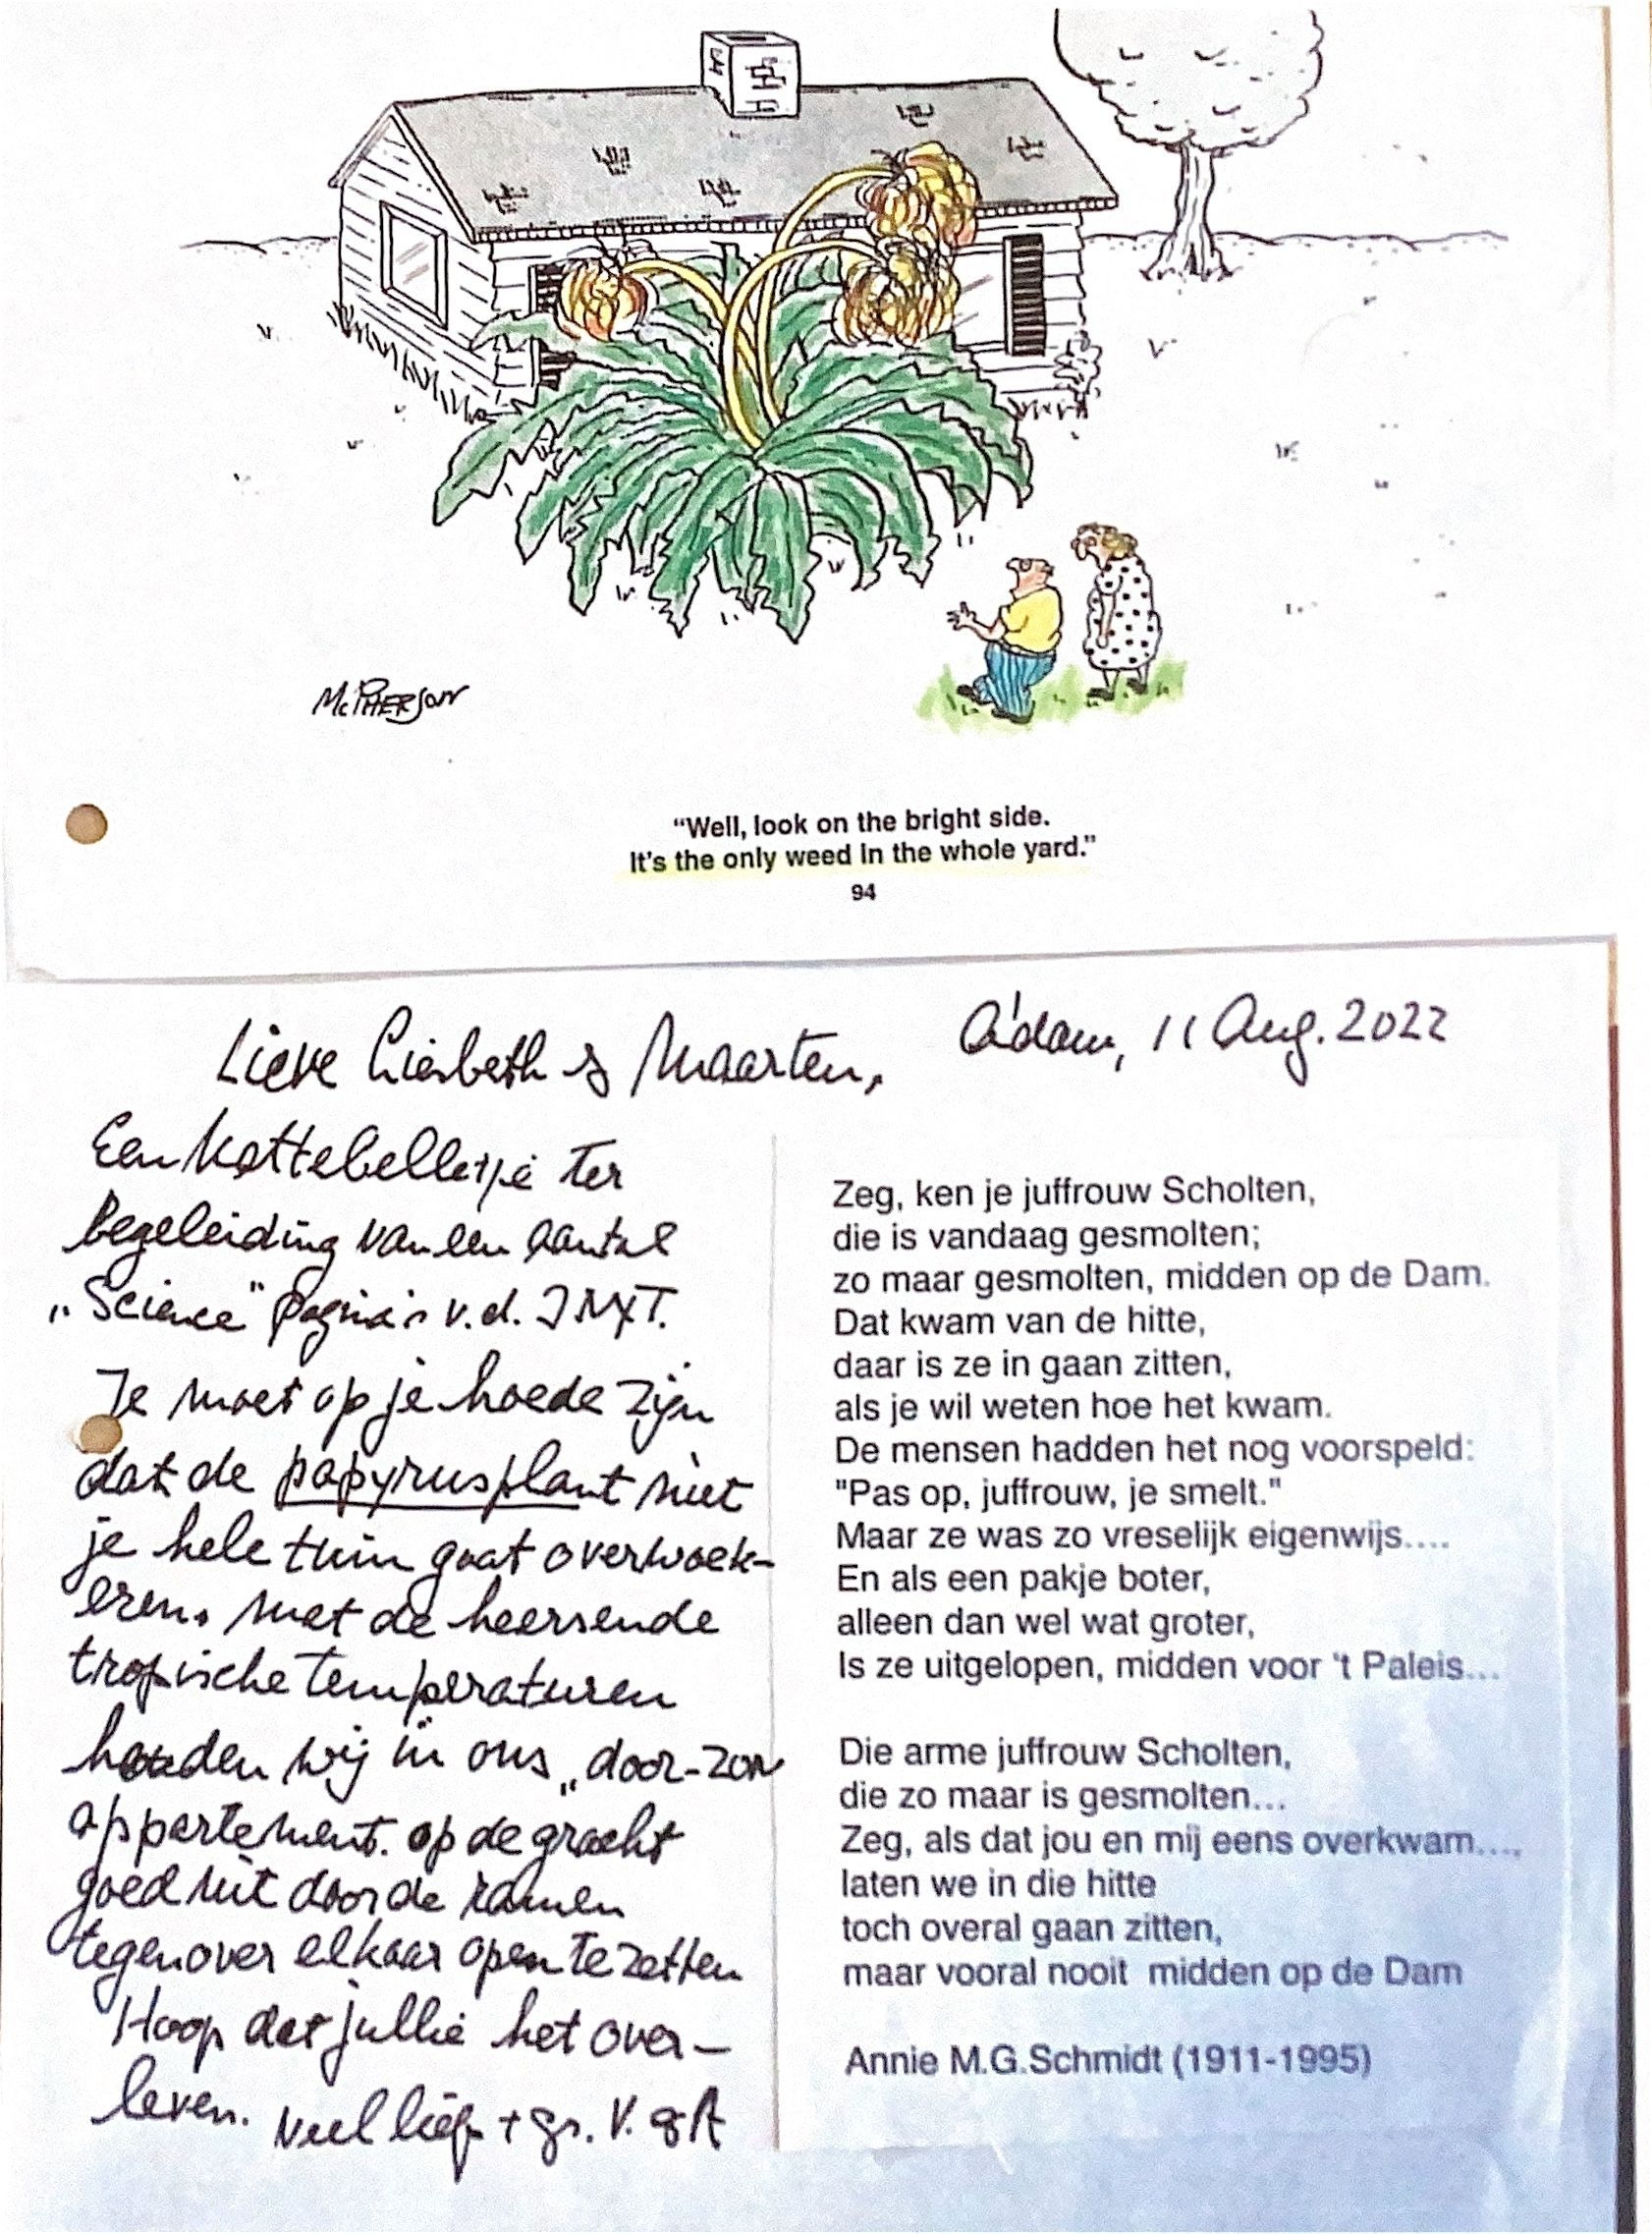 McPHERSON
“Well, look on the bright side.
It's the only weed in the whole yard.”
94
Lieve Liesbeth & Maarten,
A'dam, 11 Aug. 2022
Een kattebelletje ter
begeleiding van een aantal
„Science" pagina's v.d.
Je moet op je hoede zijn
dat de papyrusplant niet
je hele tuin gaat overwoek-
eren. Met de heersende
tropische temperaturen
houden wij in ons „door-zon
appartement. op de gracht
goed uit door de ramen
tegenover elkaar open te zetten
Hoop dat jullie het over-
leven. Veel liefs + gr. V. & A
Zeg, ken je juffrouw Scholten,
die is vandaag gesmolten;
zo maar gesmolten, midden op de Dam.
Dat kwam van de hitte,
daar is ze in gaan zitten,
als je wil weten hoe het kwam.
De mensen hadden het nog voorspeld:
"Pas op, juffrouw, je smelt."
Maar ze was zo vreselijk eigenwijs....
En als een pakje boter,
alleen dan wel wat groter,
Is ze uitgelopen, midden voor 't Paleis...
Die arme juffrouw Scholten,
die zo maar is gesmolten...
Zeg, als dat jou en mij eens overkwam....
laten we in die hitte
toch overal gaan zitten,
maar vooral nooit midden op de Dam
Annie M.G.Schmidt (1911-1995)